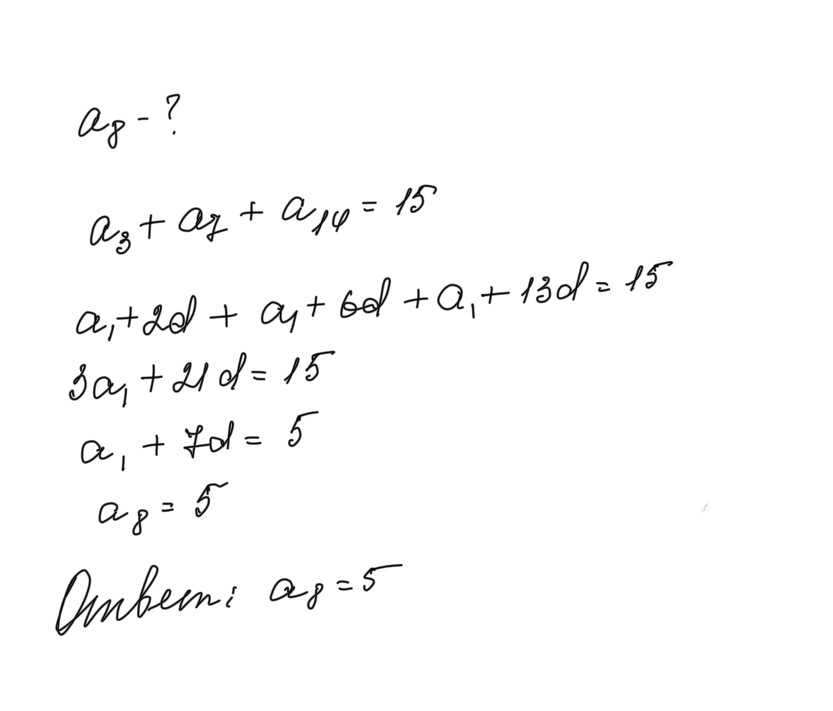 a₈ - ?
a₃ + a₇ + a₁₄ = 15
a₁ + 2d + a₁ + 6d + a₁ + 13d = 15
3a₁ + 21d = 15
a₁ + 7d = 5
a₈ = 5
Ответ: a₈ = 5